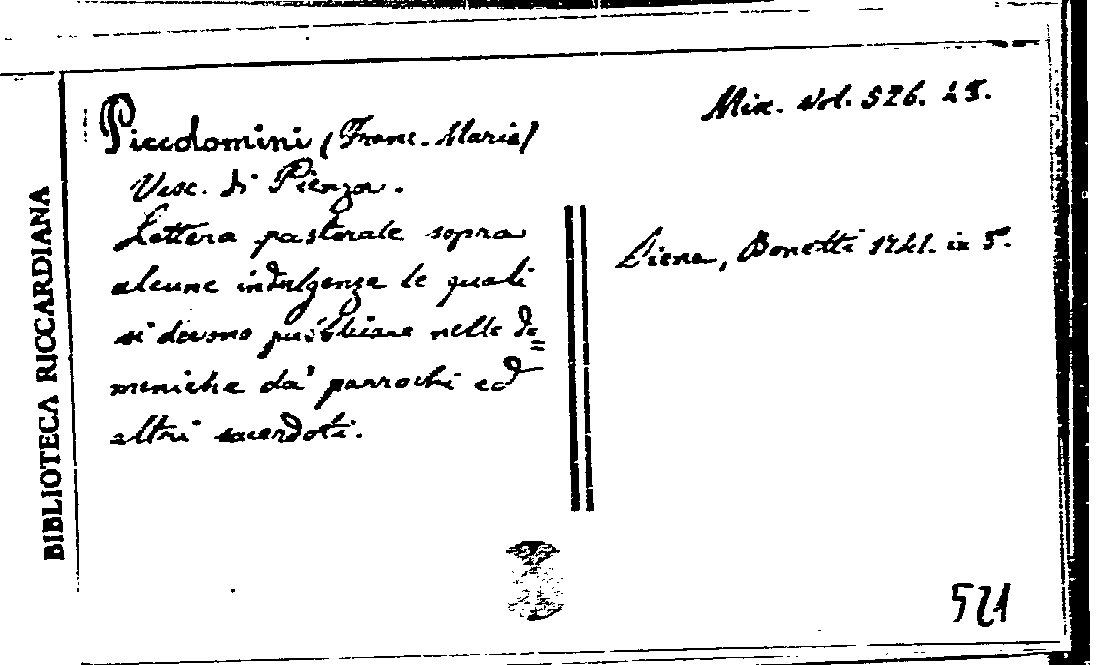 BIBLIOTECA RICCARDIANA
Misc. Vol. 526. 25.
Piccolomini (Franc. Maria)
Vesc. di Pienza.
Lettera pastorale sopra
alcune indulgenze le quali
si devono pubblicare nelle do=
meniche da' parrochi ed
altri sacerdoti.
Siena, Bonetti 1741. in
521